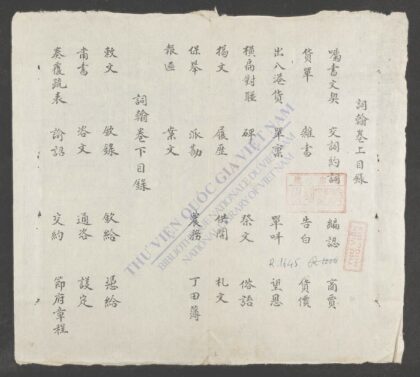 詞翰卷上目錄
囑書文契 交詞約詞 編認 商賈
貨單 雜書 告白 貨價
出入港貨 單稟 單呼 望恩
橫扁對聯 碑 祭文 俗語
揚文 履歷 供開 札文
保舉 派勘 農務 丁田簿
報區 業文
詞翰卷下目錄
敕文 敬錄 欽給 憑給
肅書 咨文 通咨 議定
奏覆疏表 諭詔 交約 節府章程
THƯ VIỆN QUỐC GIA VIỆT NAM
BIBLIOTHÈQUE NATIONALE DU VIETNAM
NATIONAL LIBRARY OF VIETNAM
R.1645